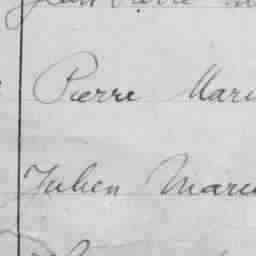 Pierre Mari
Julien Marie